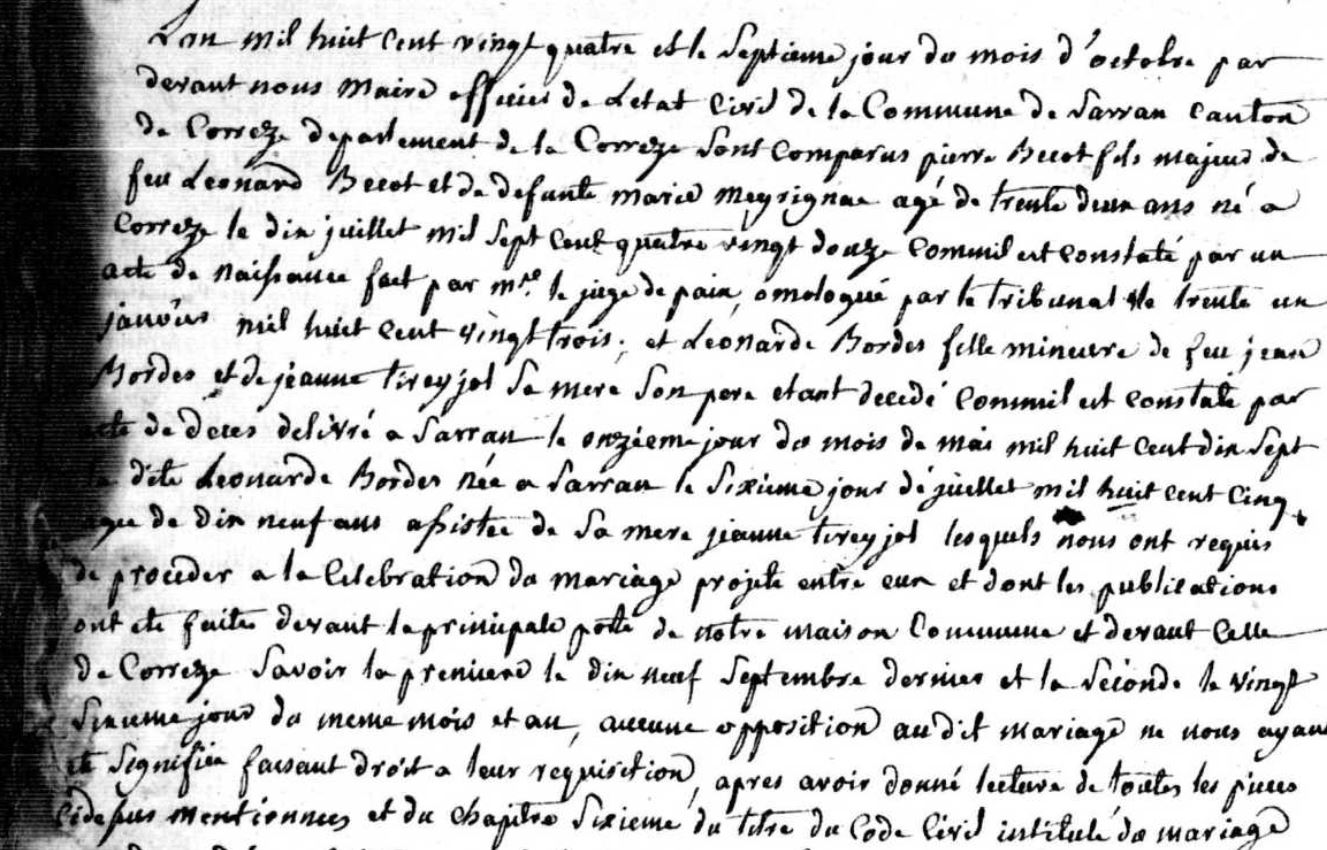 Lan mil huit cent vingt quatre et le Septieme jour du mois d'octobre par
devant nous Maire officier de Letat Civil de la Commune de Sarran Canton
de Correze departement de la Correze Sont Comparus pierre Becot fils majeur de
feu Leonard Becot et de defunte marie meyrignac agé de trente deux ans né a
Correze le dix juillet mil Sept Cent quatre vingt douze Commil est constaté par un
acte de naissance fait par mre. le juge de paix, omologué par le tribunal le trente un
janvier mil huit cent vingt trois; et Léonarde Bordes fille mineure de feu jean
Bordes et de jeanne tireyjol Sa mere Son pere etant decedé Commil est constaté par
acte de deces delivré a Sarran le onzieme jour du mois de mai mil huit Cent dix Sept
la dite Leonarde Bordes née a Sarran le Sixieme jour de juillet mil huit cent Cinq
agee de dix neuf ans assistée de Sa mere jeanne tireyjol lesquels nous ont requis
de proceder a la Celebration du mariage projeté entre eux et dont les publications
ont ete faites devant la principale porte de notre maison Commune et devant Celle
de Correze Savoir la premiere le dix neuf Septembre dernier et la Séconde le vingt
Sixieme jour du meme mois et an, aucune opposition audit mariage ne nous ayant
ete Signifiée faisant droit a leur requisition, apres avoir donné lecture de toutes les pieces
Cidessus mentionnees et du Chapitre Sixieme du titre du Code Civil intitulé du mariage